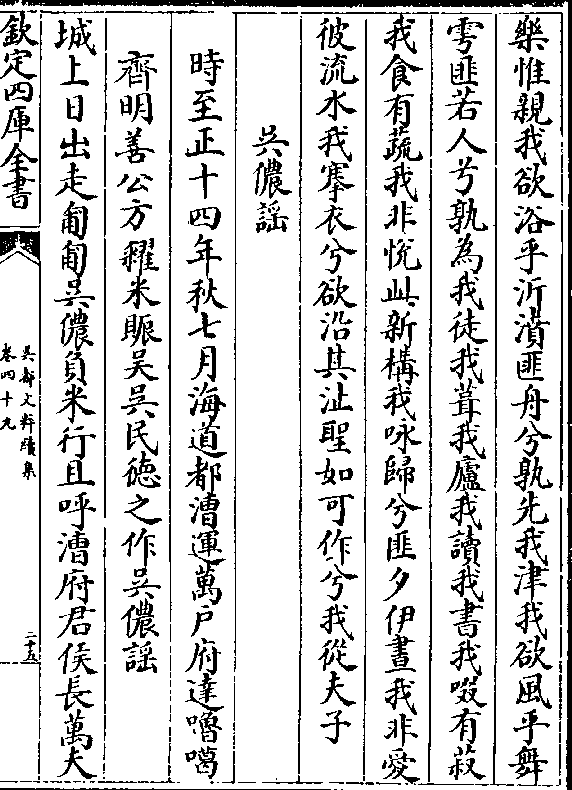 樂惟親我欲浴乎沂濆匪舟兮孰先我津我欲風乎舞
雩匪若人兮孰為我徒我葺我廬我讀我書我啜有菽
我食有蔬我非悅此新構我咏歸兮匪夕伊晝我非愛
彼流水我搴衣兮欲沿其沚聖如可作兮我從夫子
吳儂謡
時至正十四年秋七月海道都漕運萬戶府達嚕噶
齊明善公方糶米賑吴吳民德之作吳儂謡
城上日出走匍匐吳儂負米行且呼漕府君侯長萬夫
欽定四庫全書
吳都文粹續集
卷四十九
二十五